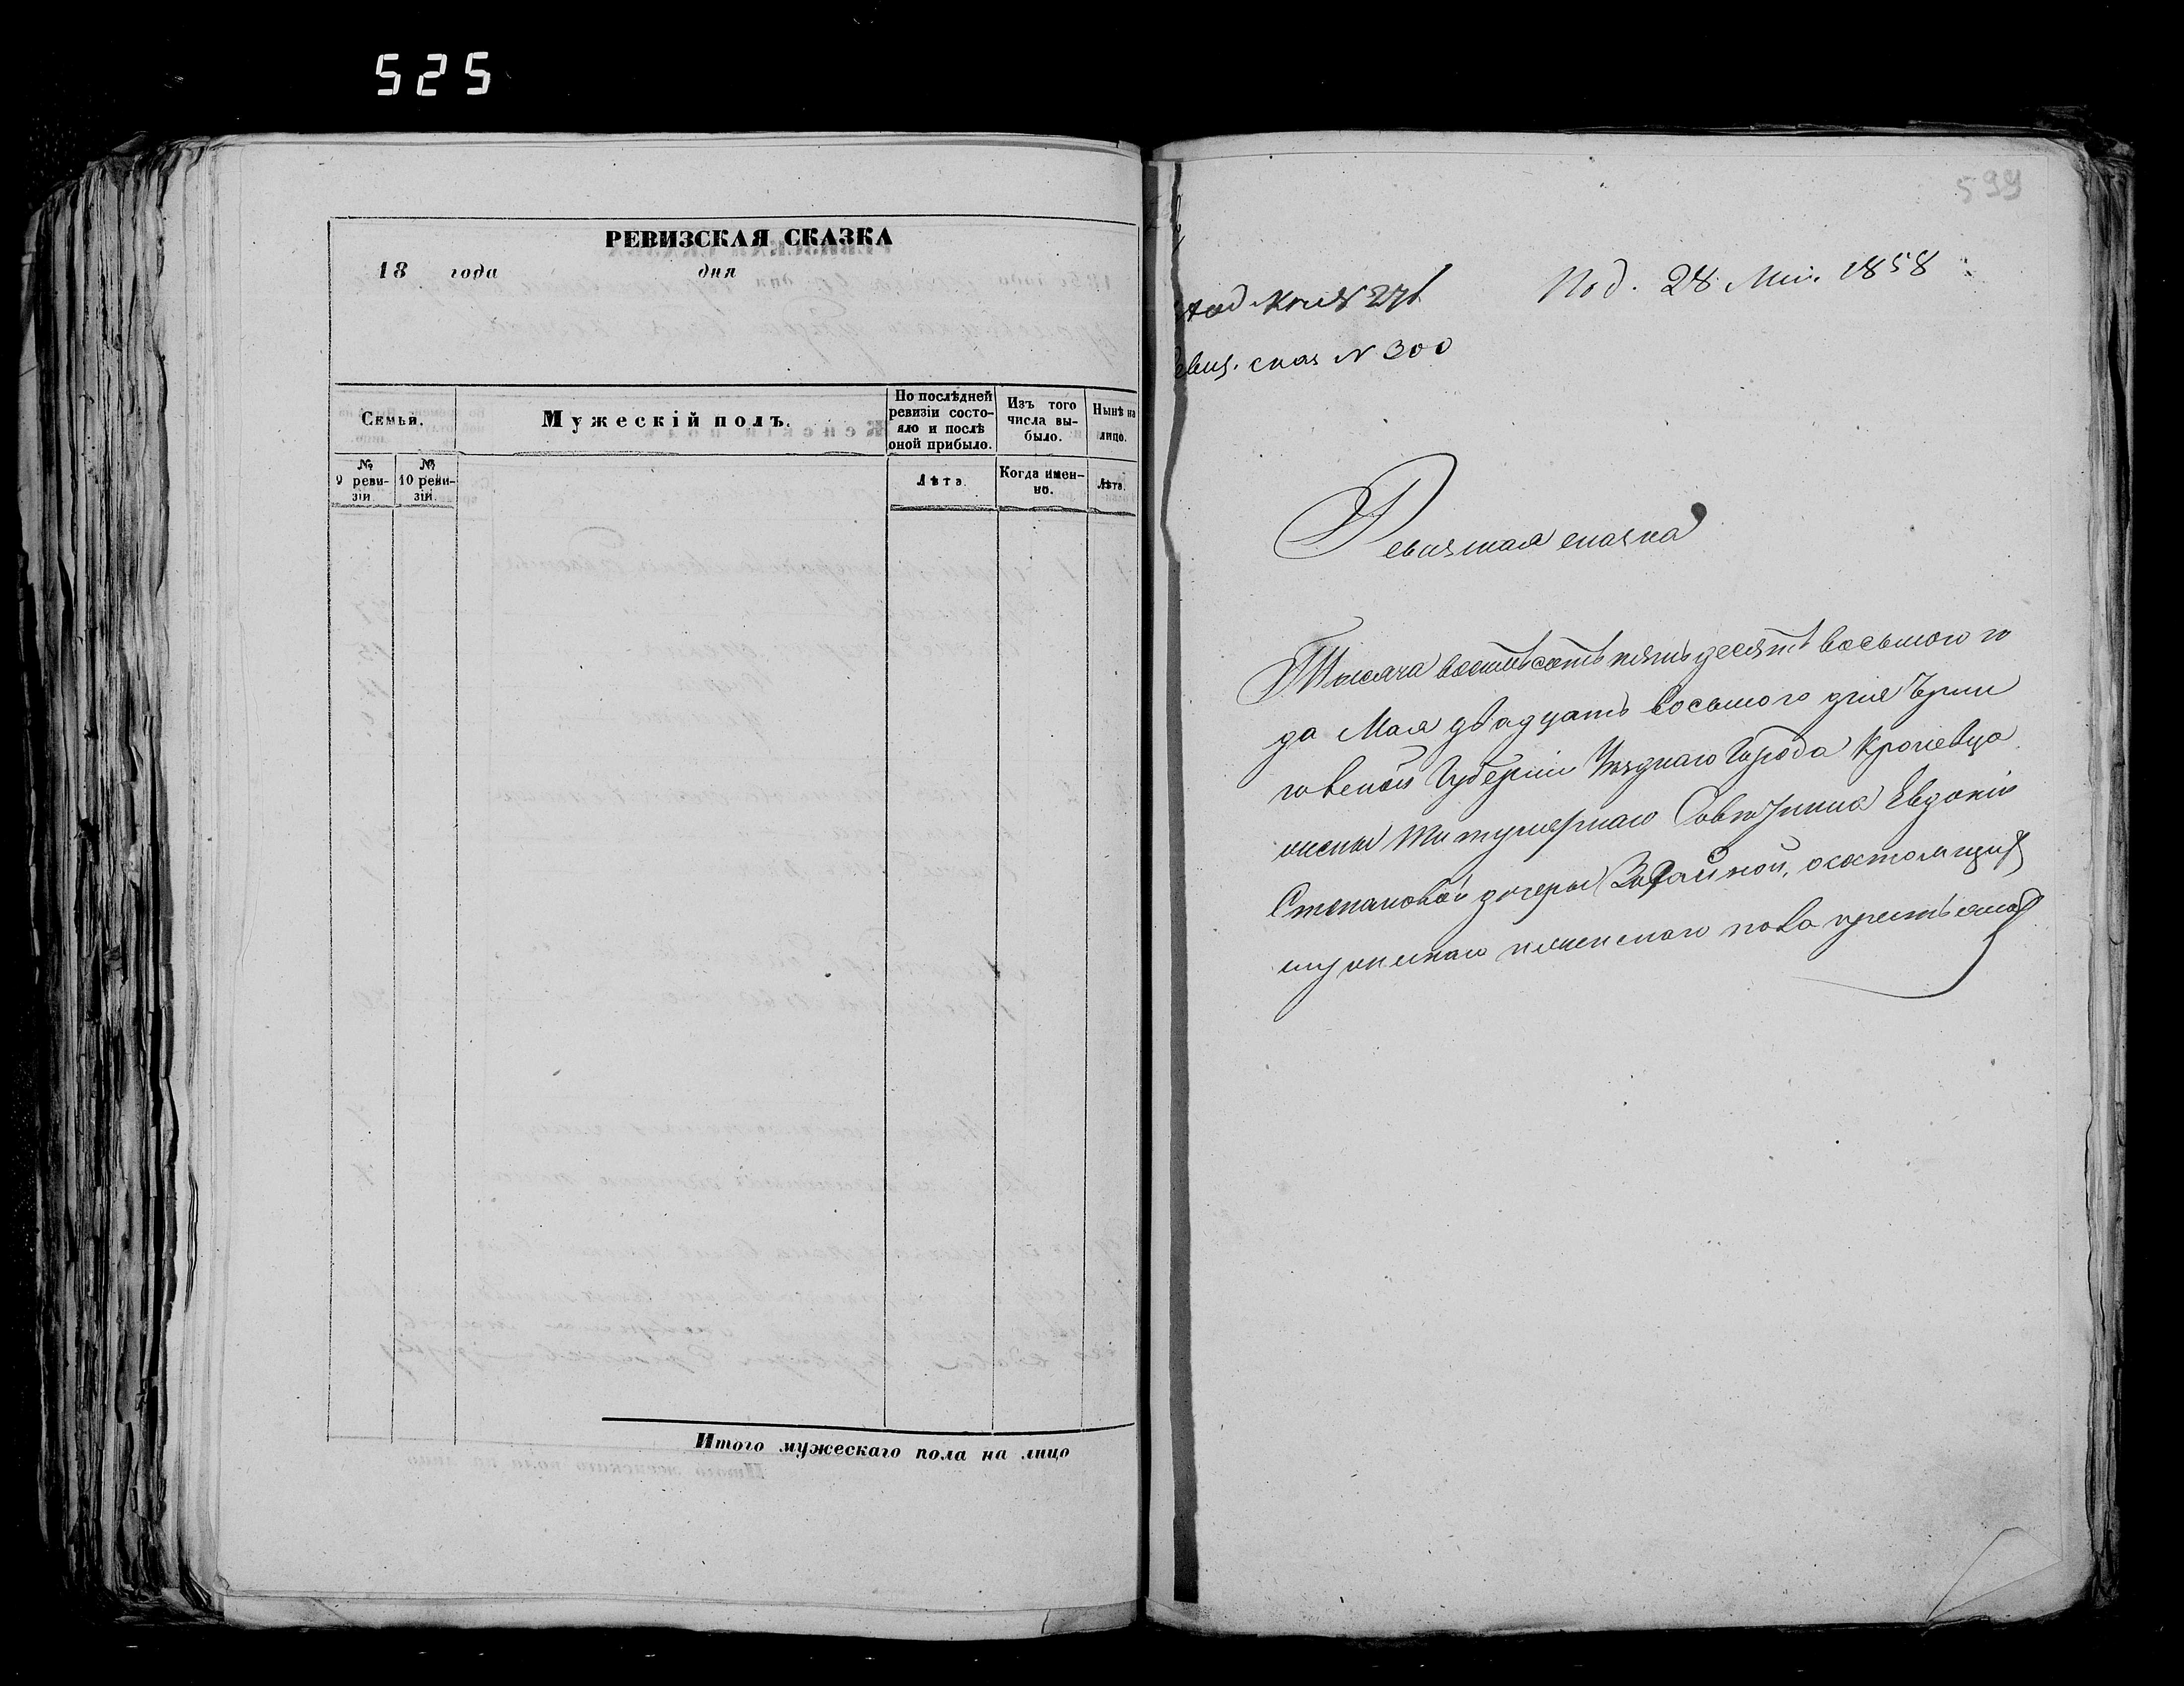 525
РЕВИЗСКАЯ СКАЗКА
18 года дня
Семьи.
Мужескій полъ.
По послѣдней ревизіи состояло и послѣ оной прибыло.
Изъ того числа выбыло.
Нынѣ на лицо.
№ 9 ревизіи.
№ 10 ревизіи.
Лѣта.
Когда именно.
Лѣта.
Итого мужескаго пола на лицо
599
Под. 28 Мая 1858
ревиз. сказ N 300
Ревизская сказка
Тысяча восемьсотъ пятьдесятъ восьмого го
да Мая двадцать восьмого дня Черни
говской Губерніи Уезднаго Города Кролевца
жены Титулярнаго Советника Евдокіи
Степановой дочеры, о состоящихъ
мужескаго женскаго пола крестьянахъ